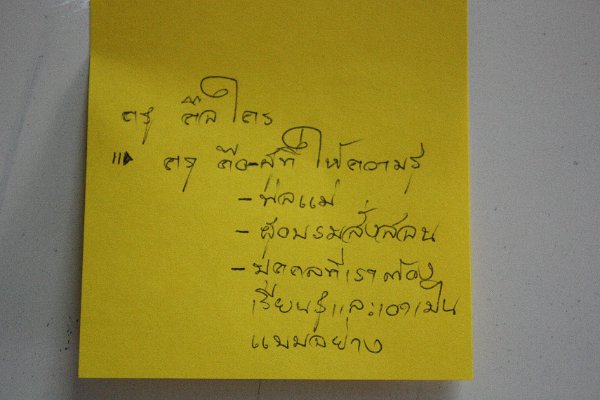 ครู คือใคร
ครู คือ ผู้ที่ ให้ความรู้
- พ่อแม่
- ผู้อบรมสั่งสอน
- บุคคลที่เราต้อง
เรียนรู้และเอาเป็น
แบบอย่าง